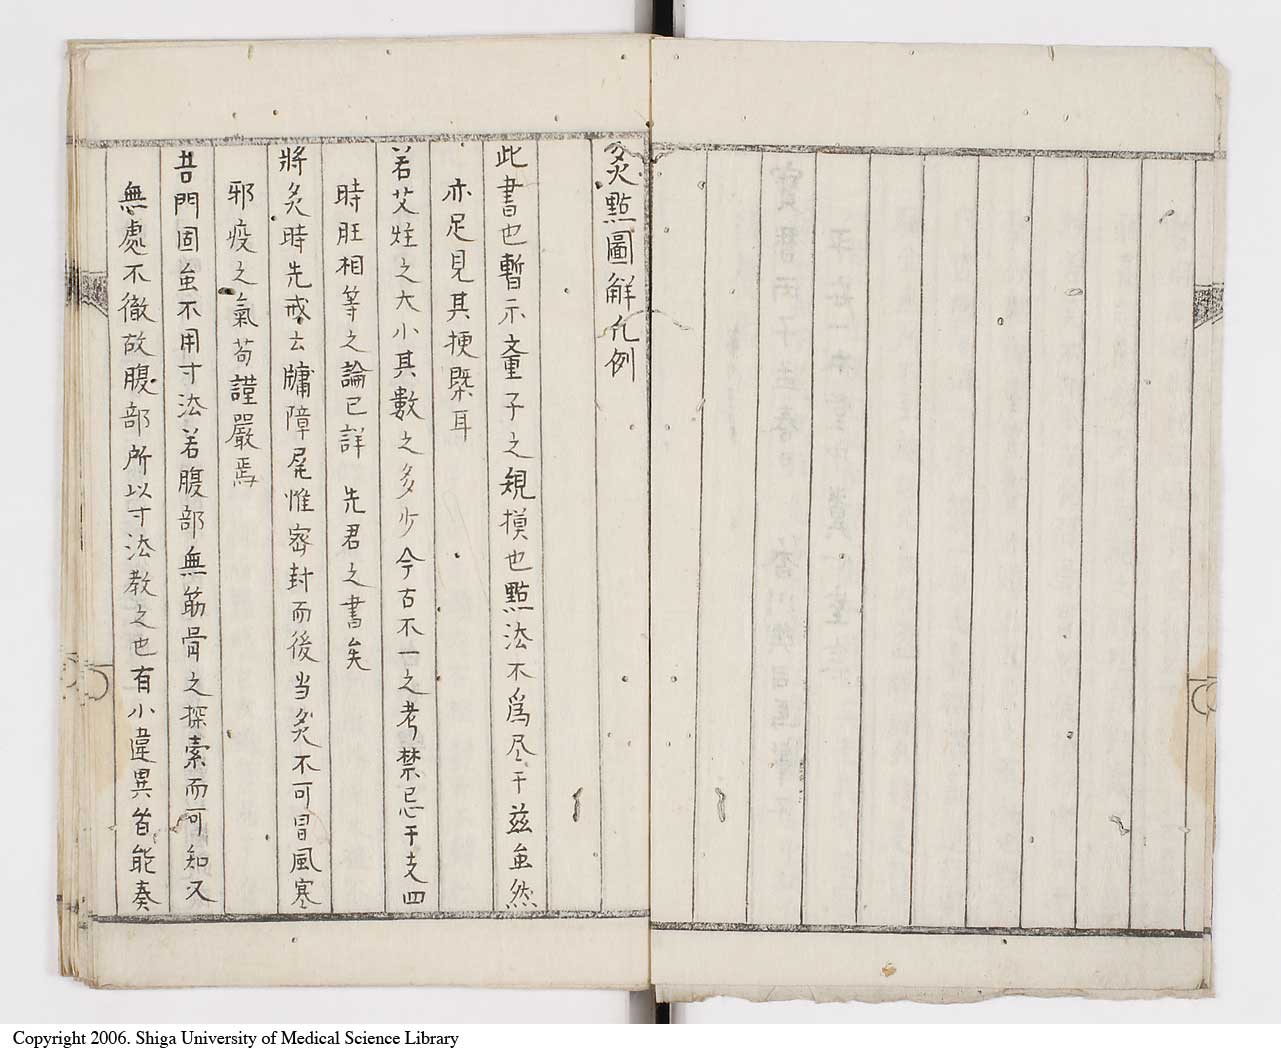 灸㸃圖解凡例
此書也暫示童子之規摸也㸃法不爲尽于玆虽然
亦足見其梗槩耳
若艾炷之大小其數之多少今古不一之考禁忌干支四
時旺相等之論已詳 先君之書矣
將灸時先戒去牗障尾惟密封而後当灸不可冒風寒
邪疫之氣苟謹嚴焉
吾門固虽不用寸法若腹部無筋骨之探索而可知又
無處不徹故腹部所以寸法教之也有小違異皆能奏
Copyright 2006. Shiga University of Medical Science Library